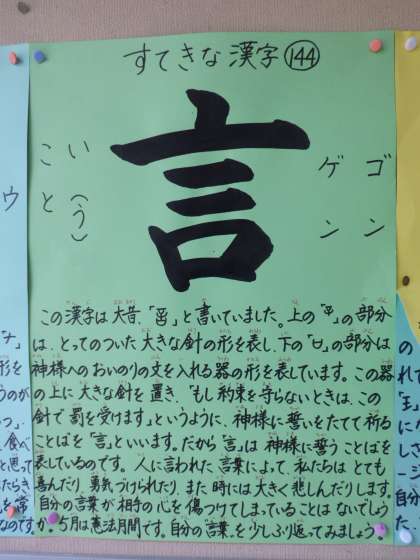 すてきな漢字 144
言
ゴン
ゲン
い(う)
こと
この漢字は大昔、「」と書いていました。上の「」の部分
は、とってのついた大きな針の形を表し、下の「ㅂ」の部分は
神様へのおいのりの文を入れる器の形を表しています。この器
の上に大きな針を置き、「もし約束を守らないときは、この
針で罰を受けます」というように、神様に誓いをたてて祈る
ことばを「言」といいます。だから「言」は神様に誓うことばを
表しているのです。人に言われた言葉によって、私たちはとても
喜んだり、勇気づけられたり、また時には大きく悲しんだりします。
自分の言葉が相手の心を傷つけてしまっていることはないでしょう
か。5月は憲法月間です。自分の"言葉"を少しふり返ってみましょう。
ウ